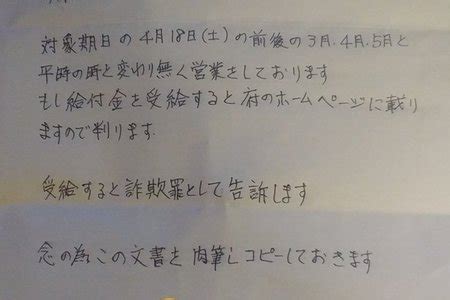 対象期日の4月18日(土)の前後の3月.4月.5月と
平時の時と変わり無く営業をしております
もし給付金を受給すると府のホームページに載り
ますので判ります.
受給すると詐欺罪として告訴します
念の為この文書を肉筆しコピーしておきます